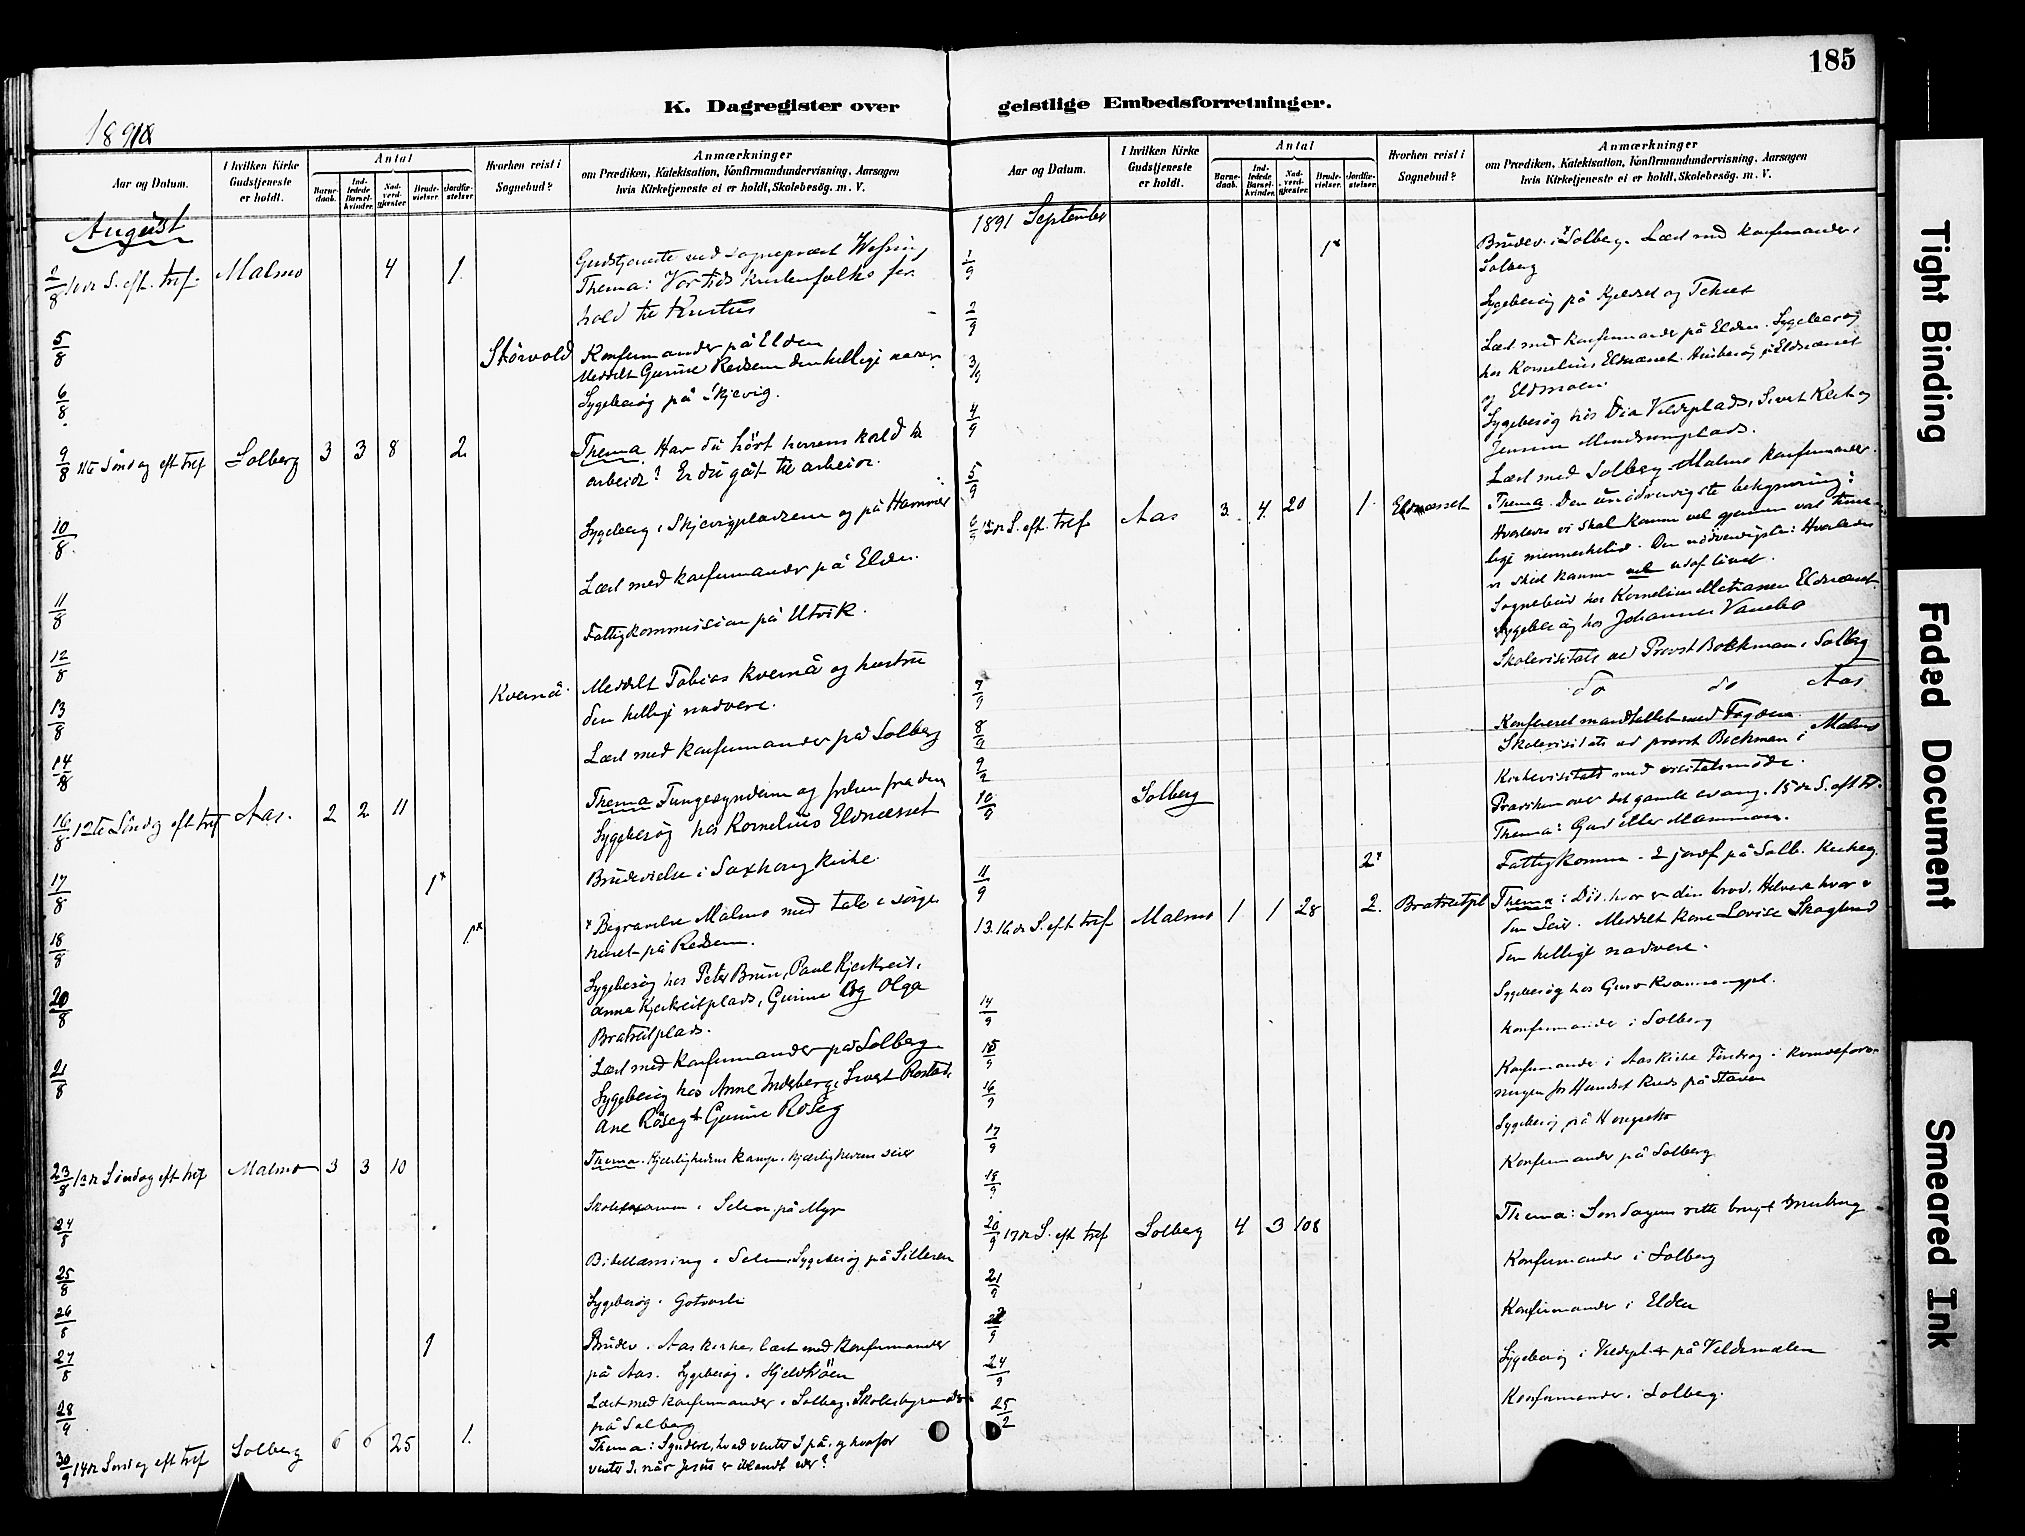 185
K. Dagregister over
geistlige Embedsforretninger.
1891
Aar og Datum.
I hvilken Kirke Gudstjeneste er holdt.
Antal
Barnedaab.
Indledede Barselkvinder.
Nadverdgjester
Brudevielser.
Jordfæstelser
Hvorhen reist i Sognebud?
Anmærkninger
om Prædiken, Katekisation, Konfirmandundervisning, Aarsagen
hvis Kirketjeneste ei er holdt, Skolebesøg. m. V.
August
2/8 10de S. eft. tref. Malmo 4 1. Gudstjeneste ved sogneprest
Thema: Vor tids kristenfolks for
hold til Kristus
5/8 Størvold Konfirmander på Elden
Meddelt Gurine Redsem den hellige
6/8 Sygebesøg på Skjevig.
9/8 11te Söndag eft tref Solberg 3 3 8 2 Thema. Har du hört herrens kald til
arbeide? Er du gåt til arbeide.
10/8. Sygebesøg i Skjevigpladsene og på Hammer
11/8 Læst med konfirmander på Elden.
12/8 Fattigkommission på Utvik.
13/8 Kvernå. Meddelt Tobias Kvernå og hustru
den hellige nadvere.
14/8 Læst med konfirmander på Solberg
16/8 12te Söndag eft tref Aas. 2 2 11 Thema Tungesyndene og frelsen fra dem
Sygebesøg hos Kornelius Eldnesset
17/8 1x Brudevielse i Saxhaug kirke.
18/8 1x x Begravelse Malmo med tale i sørge
huset på Redsem.
20/8 Sygebesøg hos Peter Brun, Paul Kjerkreit,
Anna Kjerkreitplads, Gurine og Olga
Bratreitplads.
21/8 Læst med konfirmander på Solberg
Sygebesøg hos Anne Inderberg, Sivert Rostad,
Ane Röseg & Gurine Röseg
23/8 13de Söndag eft tref Malmo 3 3 10 Thema. Kjærlighedens kamp, kjærlighedens seier
24/8 Skoleexamen i Selen på Myr
25/8 Bibellæsning i Selen. Sygebesøg på Silleren
26/8 Sygebesøg i
27/8 1 Brudev. i Aas kirke, læst med konfirmander
på Aas. Sygebesøg i
28/9 Læst med konfirmander i Solberg. Skolebestyrermøde
på Solberg
30/9 14de Sondag eft tref Solberg 6 6 25 1. Thema: Syndere, hvad venter I på, og hvorfor
venter I, når Jesus er iblandt eder?
Aar og Datum.
I hvilken Kirke Gudstjeneste er holdt.
Antal
Barnedaab.
Indledede Barselkvinder.
Nadverdgjester
Brudevielser.
Jordfæstelser
Hvorhen reist i Sognebud?
Anmærkninger
om Prædiken, Katekisation, Konfirmandundervisning, Aarsagen
hvis Kirketjeneste ei er holdt, Skolebesøg. m. V.
1891 September
1/9 1x Brudev. i Solberg. Læst med konfirmander i
Solberg
2/9 Sygebesøg på Kjeldset og
3/9 Læst med konfirmander på Elden. Sygebesøg
hos Kornelius Eldnæsset. Husbesøg på Eldnæsset
og Eldmoen.
4/9 Sygebesøg hos Veldeplads, Sivert Kleit og
Jensine
5/9 Læst med Solberg Malmo konfirmander.
6/9 15de S. eft. tref. Aas 3. 4. 20 1. Eldnæsset Thema. Den unödvendigste bekymring:
Hvorledes vi skal komme vel gjennem vort time-
lige menneskeliv. Den nödvendigste: Hvorledes
vi skal komme vel ud af livet.
Sognebud hos Kornelius Eldnæsset.
Sygebesøg hos Johannes
7/9 Skolevisitats ved Provst Bockman i Solberg
8/9 do do Aas
Konfereret mandtallet med Fogden.
9/9 Skolevisitats ved provst Bockman i Malmo
10/9 Solberg Kirkevisitats med visitatsmøde.
Prædiken over det gamle evang. 15de S. eft Tr.
Thema: Gud eller Mammon.
11/9 2x Fattigkomm. 2 jordf på Solb. Kirkeg.
13. 16de S. eft tref Malmo 1 1 28 2. Bratreitpl Thema: Död, hvor er din brod. Helvede hvor er
din Seier. Meddelt kone Lovise Skoglund
den hellige nadvere.
14/9 Sygebesøg hos Guro
15/9 Konfirmander i Solberg
16/9 Konfirmander i Aas Kirke Foredrag i kvindefore-
ningen
17/9 Sygebesøg på
18/9 Konfirmander på Solberg
20/9 17de S. eft tref Solberg 4 3 108 Thema: Søndagens rette brug & misbrug
21/9 Konfirmander i Solberg
22/9 Konfirmander i Elden
24/9 Sygebesøg i Veldepl & på Veldemælen
25/2 Konfirmander i Solberg.
Tight Binding
Faded Document
Smeared Ink